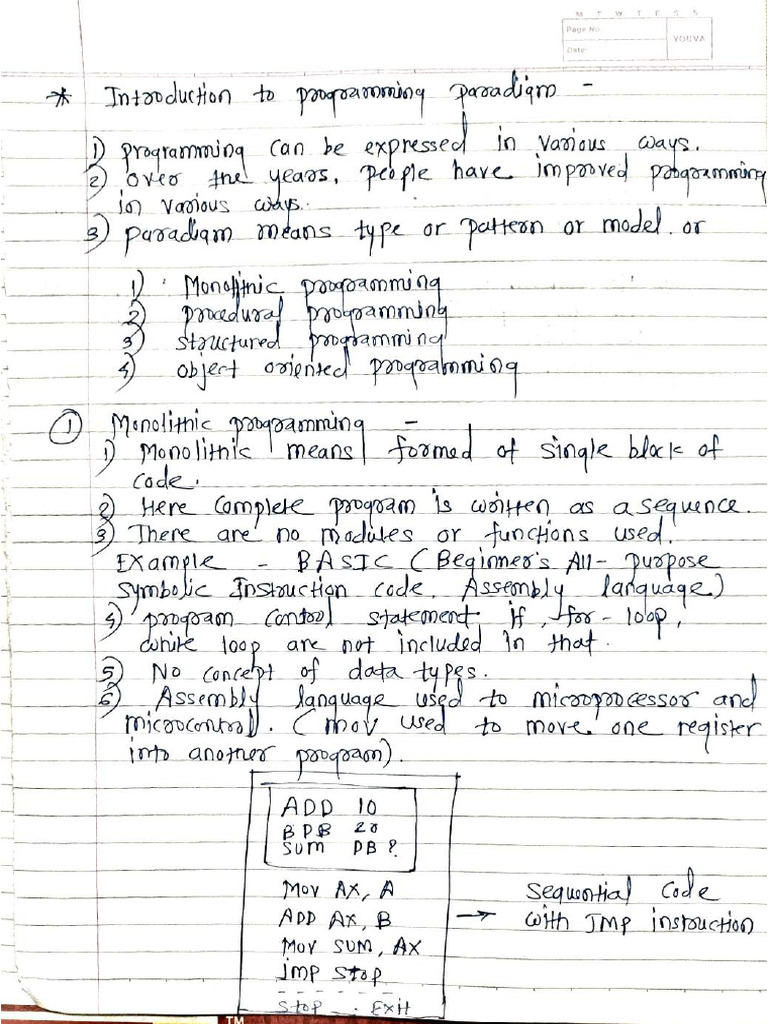 M T W T F S S
Page No.
YOUVA
Date:
* Introduction to programming paradigm -
1) programming can be expressed in various ways.
2) over the years, people have improved programming
in various ways.
3) paradigm means type or pattern or model. or
1) Monolithic programming
2) procedural programming
3) structured programming
4) object oriented programming
① Monolithic programming -
1) Monolithic means formed of single block of
code.
2) Here complete program is written as a sequence.
3) There are no modules or functions used.
Example - BASIC (Beginner's All-purpose
symbolic Instruction code, Assembly language)
4) program control statement if, for-loop,
while loop are not included in that.
5) No concept of data types.
6) Assembly language used to microprocessor and
microcontrol. (mov used to move one register
into another program).
ADD 10
BDB 20
SUM DB ?
Mov AX, A
ADD AX, B
Mov SUM, AX
jmp stop
stop . Exit
→ sequential code
with JMP instruction
TM